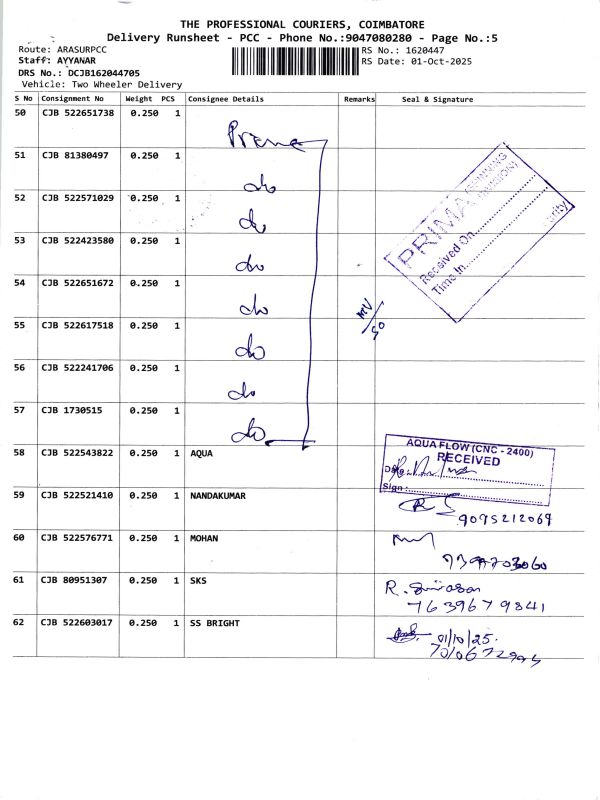 THE PROFESSIONAL COURIERS, COIMBATORE
Delivery Runsheet - PCC - Phone No.:9047080280 - Page No.:5
Route: ARASURPCC
Staff: AYYANAR
DRS No.: DCJB162044705
Vehicle: Two Wheeler Delivery
RS No.: 1620447
RS Date: 01-Oct-2025
S No Consignment No Weight PCS Consignee Details Remarks Seal & Signature
50 CJB 522651738 0.250 1
51 CJB 81380497 0.250 1 do
52 CJB 522571029 0.250 1 do
53 CJB 522423580 0.250 1 do
54 CJB 522651672 0.250 1 do
55 CJB 522617518 0.250 1 do
56 CJB 522241706 0.250 1 do
57 CJB 1730515 0.250 1 do
PRIMA
Received On
Time In
58 CJB 522543822 0.250 1 AQUA
AQUA FLOW (CNC - 2400)
RECEIVED
Sign:
59 CJB 522521410 0.250 1 NANDAKUMAR
9095212069
60 CJB 522576771 0.250 1 MOHAN
61 CJB 80951307 0.250 1 SKS
7639679841
62 CJB 522603017 0.250 1 SS BRIGHT
01/10/25